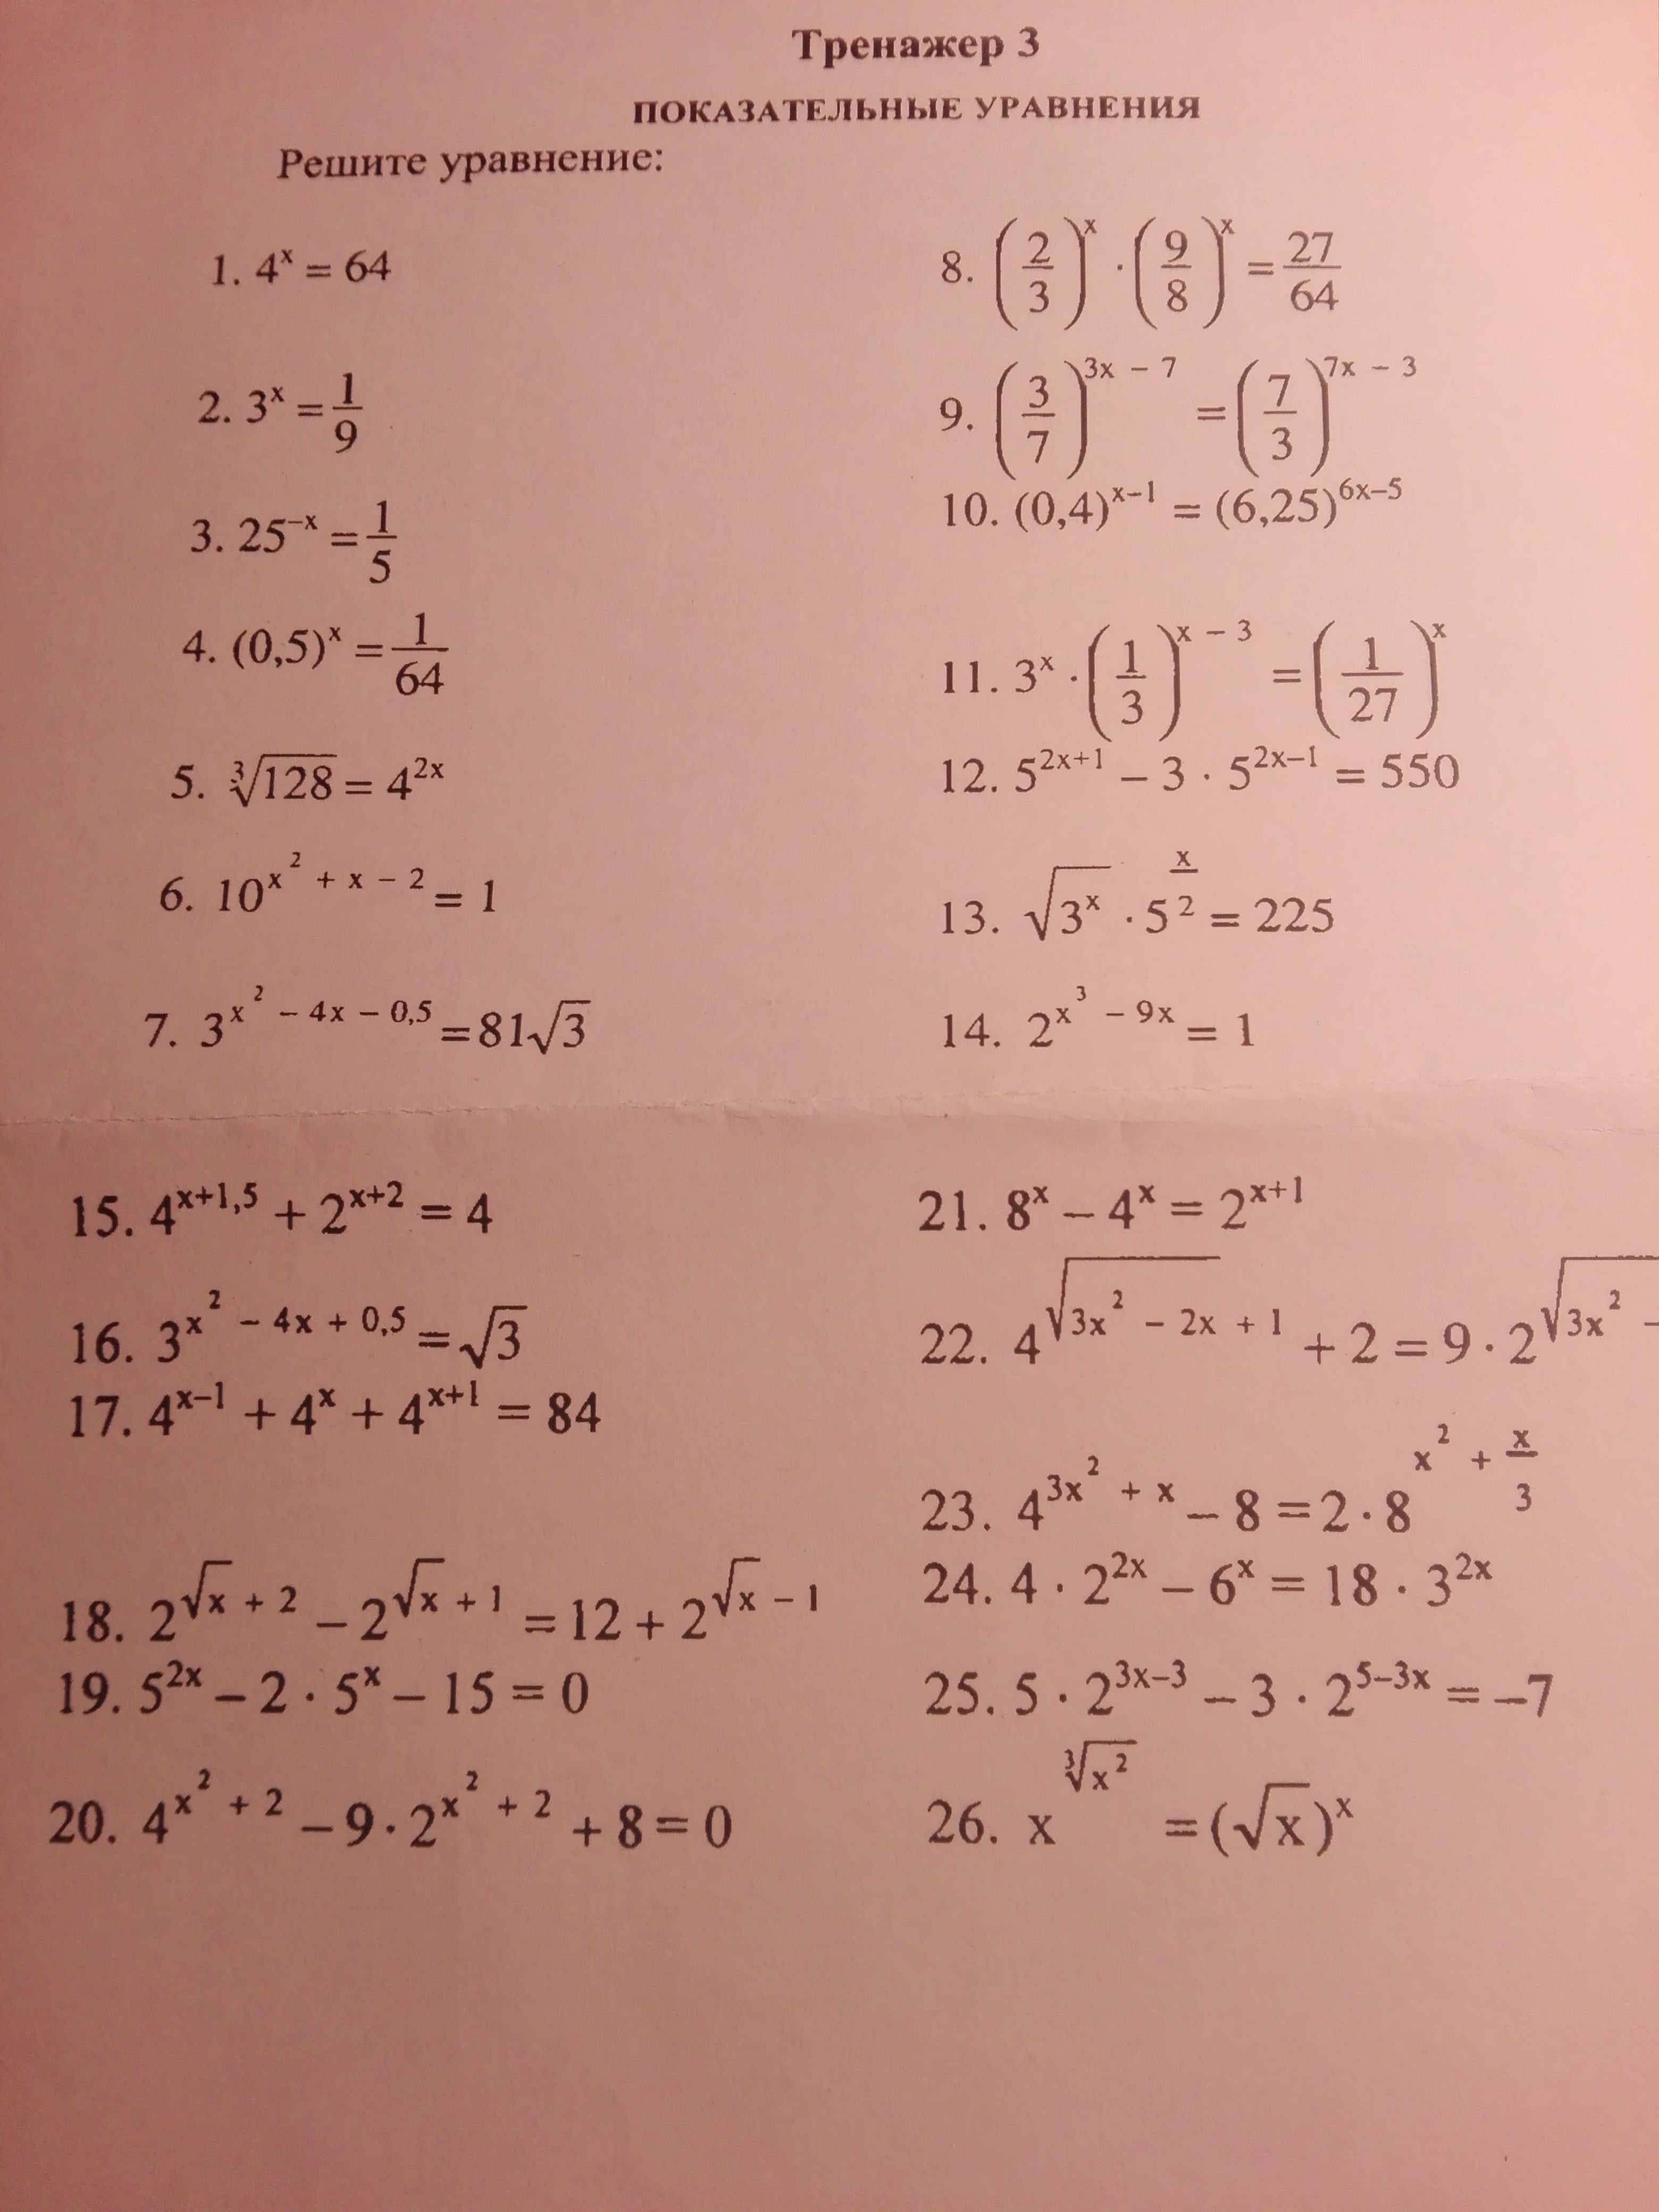 Тренажер 3
ПОКАЗАТЕЛЬНЫЕ УРАВНЕНИЯ
Решите уравнение:
1. 4^x = 64
2. 3^x = 1/9
3. 25^(–x) = 1/5
4. (0,5)^x = 1/64
5. ∛128 = 4^(2x)
6. 10^(x² + x – 2) = 1
7. 3^(x² – 4x – 0,5) = 81√3
8. (2/3)^x · (9/8)^x = 27/64
9. (3/7)^(3x – 7) = (7/3)^(7x – 3)
10. (0,4)^(x–1) = (6,25)^(6x–5)
11. 3^x · (1/3)^(x – 3) = (1/27)^x
12. 5^(2x+1) – 3 · 5^(2x–1) = 550
13. √(3^x) · 5^(x/2) = 225
14. 2^(x³ – 9x) = 1
15. 4^(x+1,5) + 2^(x+2) = 4
16. 3^(x² – 4x + 0,5) = √3
17. 4^(x–1) + 4^x + 4^(x+1) = 84
18. 2^(√x + 2) – 2^(√x + 1) = 12 + 2^(√x – 1)
19. 5^(2x) – 2 · 5^x – 15 = 0
20. 4^(x² + 2) – 9 · 2^(x² + 2) + 8 = 0
21. 8^x – 4^x = 2^(x+1)
22. 4^(√(3x² – 2x) + 1) + 2 = 9 · 2^(√(3x² –
23. 4^(3x² + x) – 8 = 2 · 8^(x² + x/3)
24. 4 · 2^(2x) – 6^x = 18 · 3^(2x)
25. 5 · 2^(3x–3) – 3 · 2^(5–3x) = –7
26. x^(∛(x²)) = (√x)^x